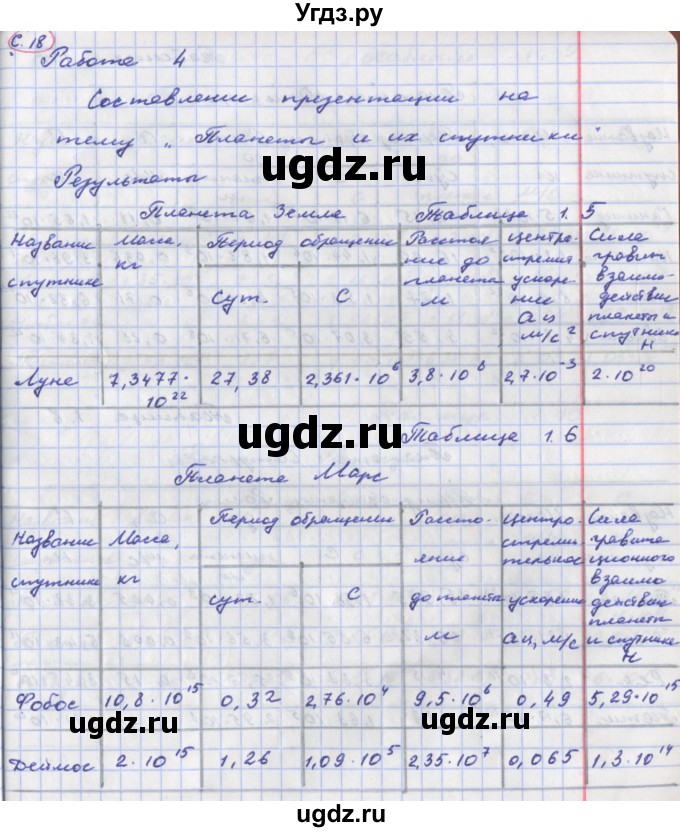 Угдз.ру
с. 18
Работа 4
Составлении презентации на
тему „Планеты и их спутники"
ugdz.ru
Результаты
Планета Земля Таблица 1. 5
Название спутника | Масса, кг | Период обращения сут. | с | Расстояние до планеты м | Центростремит. ускорение aц м/с² | Сила гравит взаимодействии планеты и спутника Н
Луна | 7,3477·10²² | 27,38 | 2,361·10⁶ | 3,8·10⁸ | 2,7·10⁻³ | 2·10²⁰
ugdz.ru
Таблица 1. 6
Планета Марс
Название спутника | Масса, кг | Период обращения сут. | с | Расстояние до планеты м | Центростремительное ускорение aц, м/с | Сила гравитационного взаимодействии планеты и спутника Н
Фобос | 10,8·10¹⁵ | 0,32 | 2,76·10⁴ | 9,5·10⁶ | 0,49 | 5,29·10¹⁵
ugdz.ru ugdz.ru
Деймос | 2·10¹⁵ | 1,26 | 1,09·10⁵ | 2,35·10⁷ | 0,065 | 1,3·10¹⁴
ugdz.ru